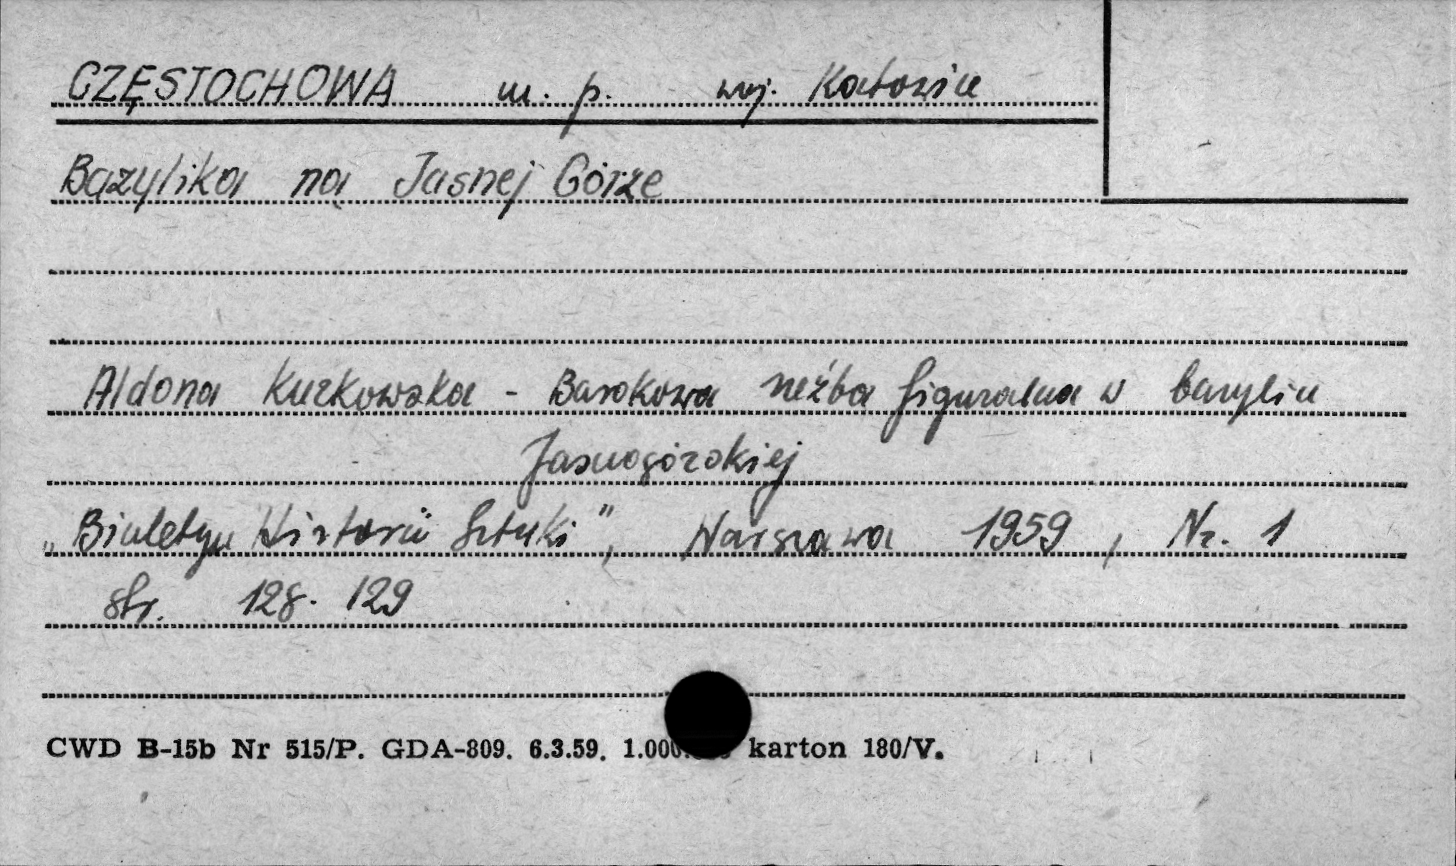 CZĘSTOCHOWA m. p. woj. Katowice
Bazylika na Jasnej Górze
Aldona Kurkowska - Barokowa rzeźba figuralna w bazylice
Jasnogórskiej
„Biuletyn Historii Sztuki", Warszawa 1959, Nr. 1
str. 128-129
CWD B-15b Nr 515/P. GDA-809. 6.3.59. karton 180/V.